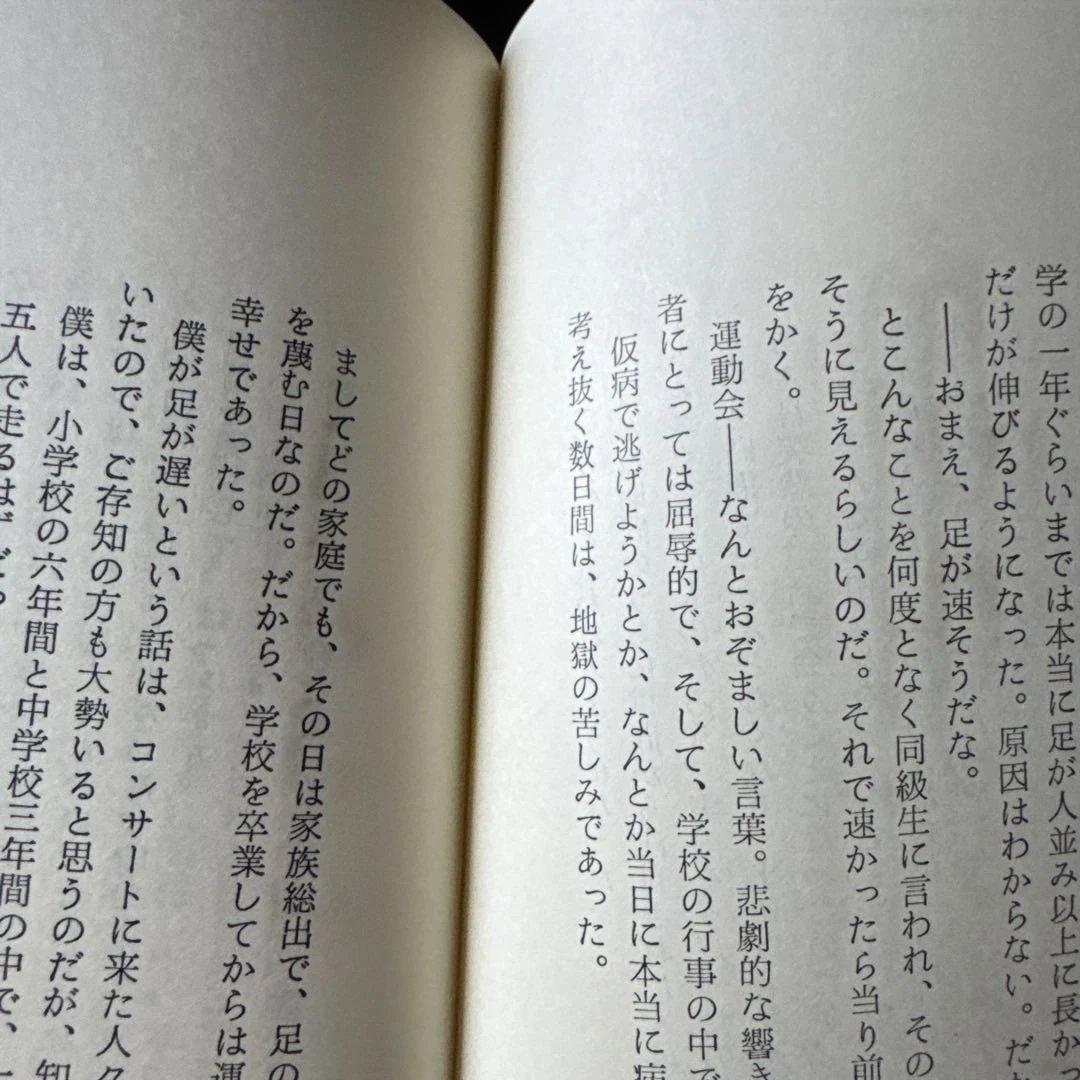 学の一年ぐらいまでは本当に足が人並み以上に長かっ
だけが伸びるようになった。原因はわからない。だ
――おまえ、足が速そうだな。
とこんなことを何度となく同級生に言われ、その
そうに見えるらしいのだ。それで速かったら当り前
をかく。
運動会――なんとおぞましい言葉。悲劇的な響き
者にとっては屈辱的で、そして、学校の行事の中で
仮病で逃げようかとか、なんとか当日に本当に病
考え抜く数日間は、地獄の苦しみであった。
ましてどの家庭でも、その日は家族総出で、足の
を蔑む日なのだ。だから、学校を卒業してからは運
幸せであった。
僕が足が遅いという話は、コンサートに来た人
いたので、ご存知の方も大勢いると思うのだが、知
僕は、小学校の六年間と中学校三年間の中で、
五人で走るはず